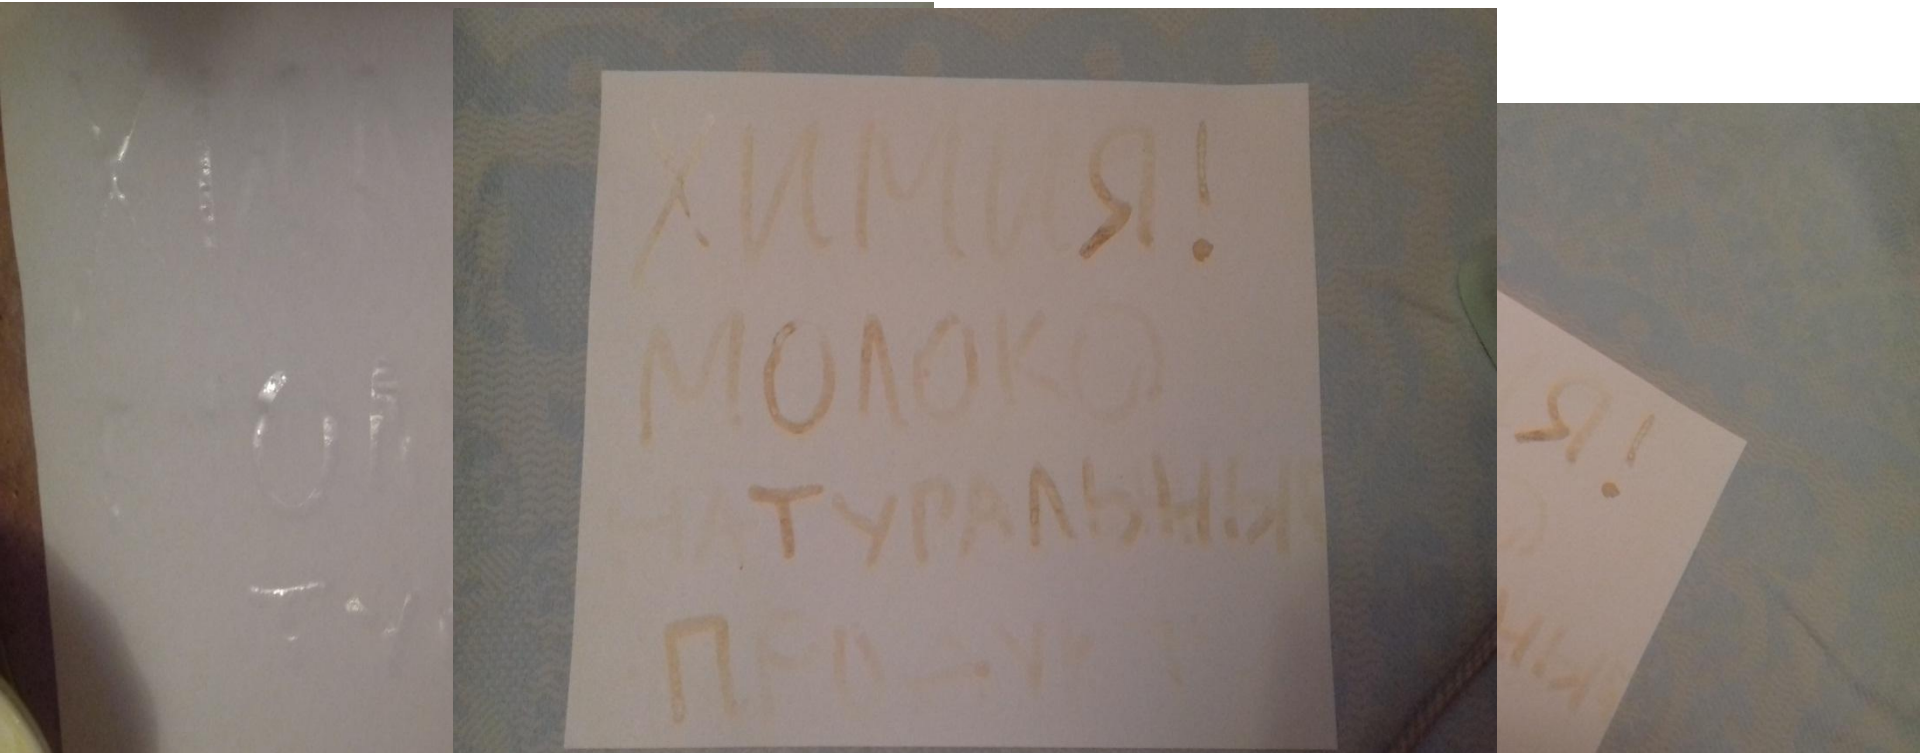 ХИМИЯ!
МОЛОКО
НАТУРАЛЬНЫЙ
ПРОДУКТ
Я!